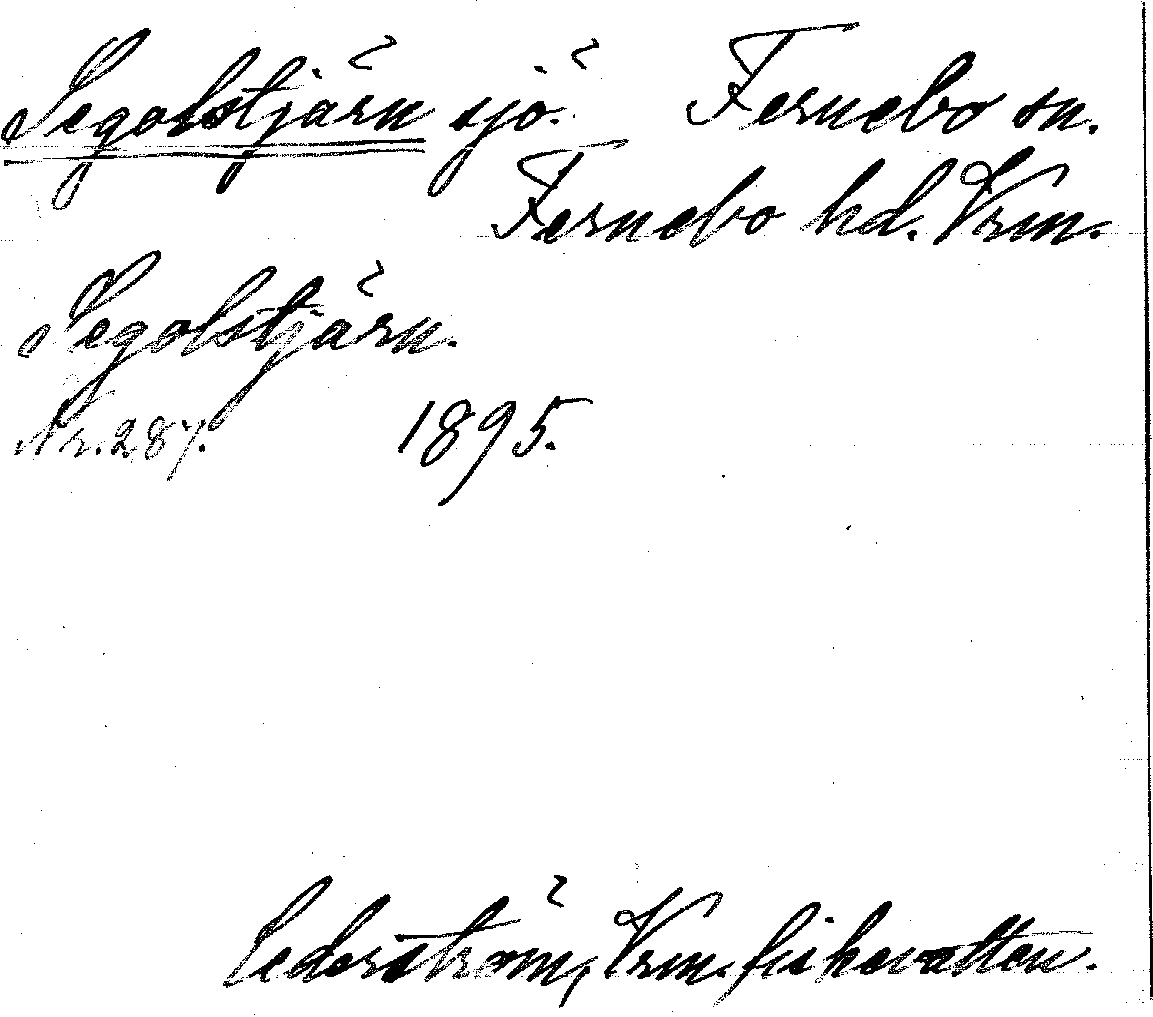 Segolstjärn sjö. Fernebo sn.
Fernebo hd. Vrm.
Segolstjärn.
Nr. 287. 1895.
Cederström, Vrm. fiskevatten.